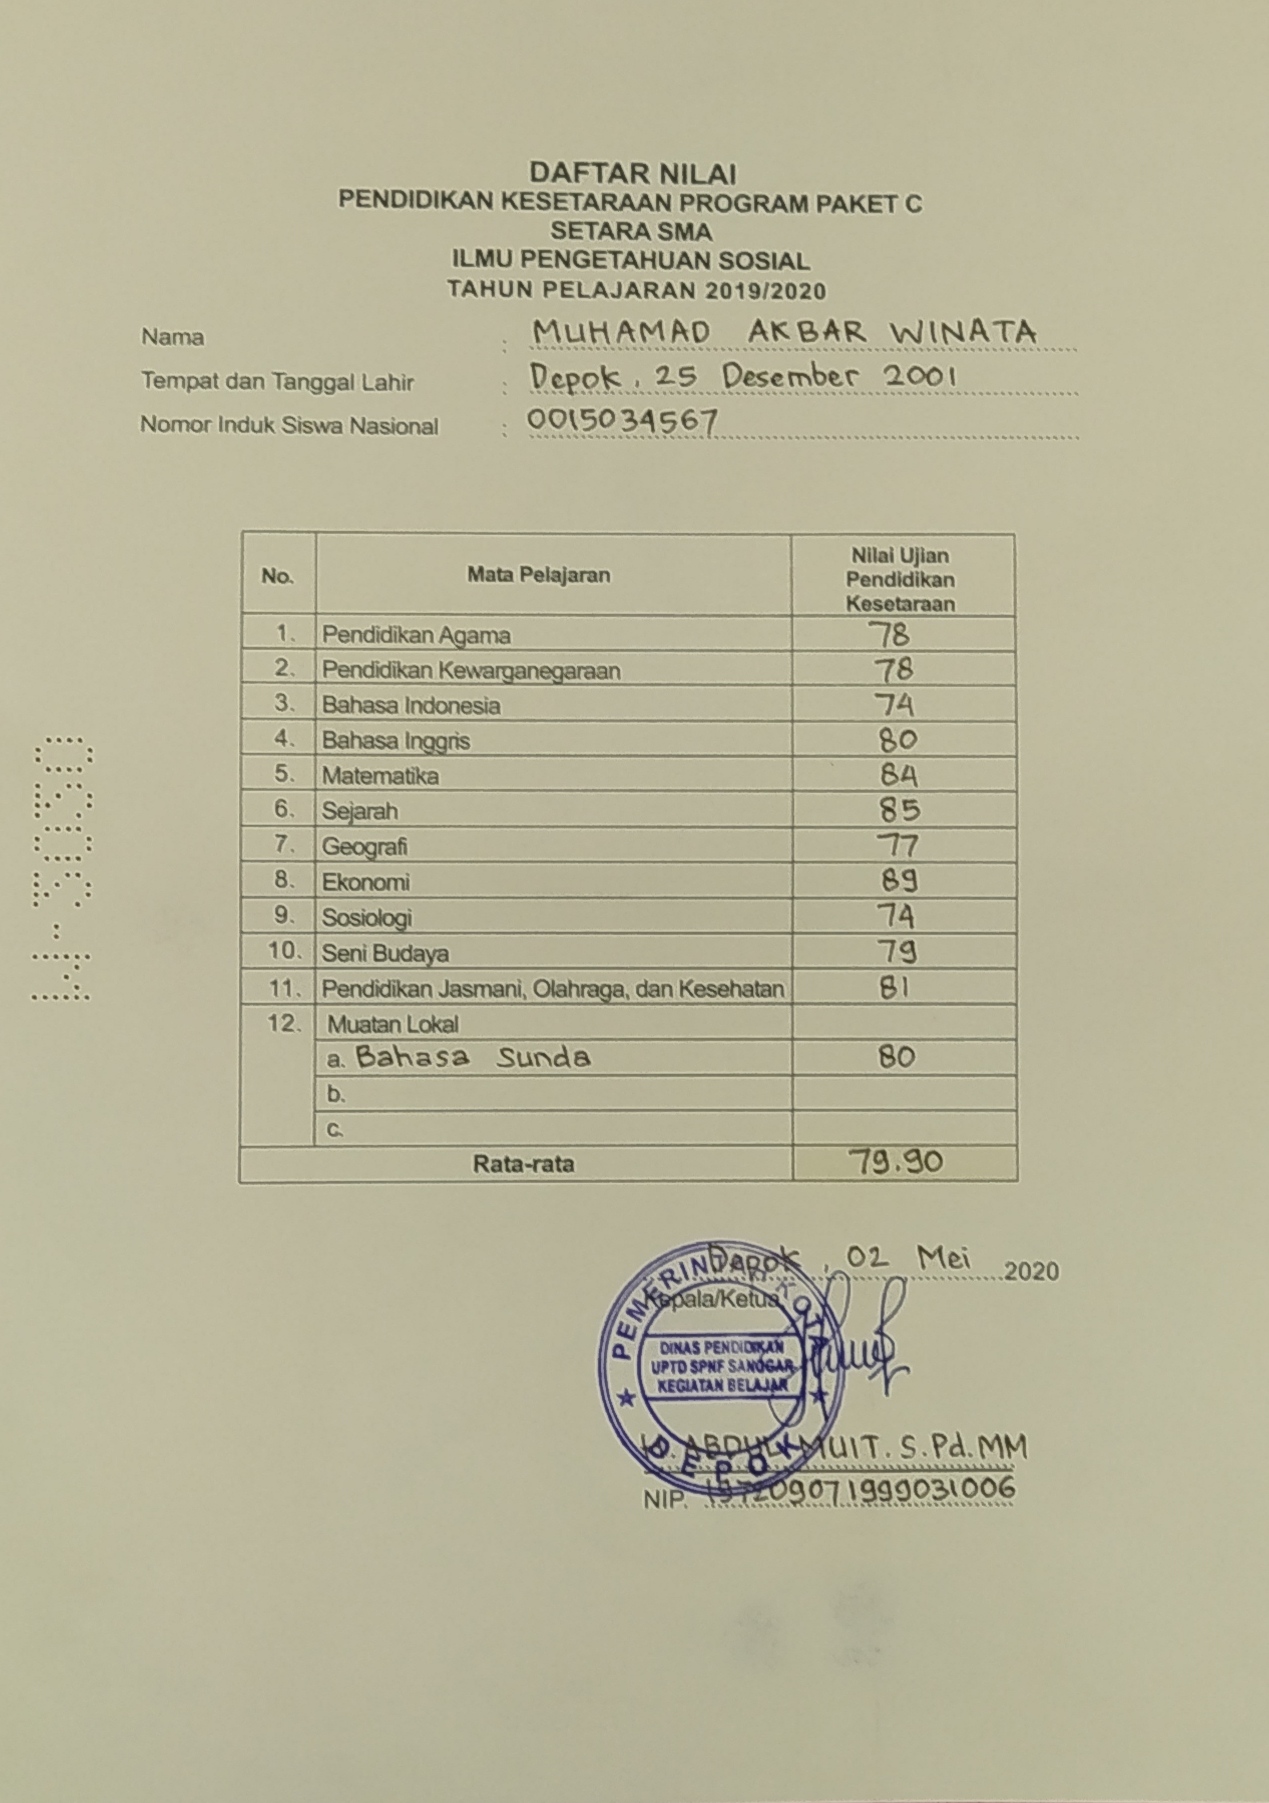 DAFTAR NILAI
PENDIDIKAN KESETARAAN PROGRAM PAKET C
SETARA SMA
ILMU PENGETAHUAN SOSIAL
TAHUN PELAJARAN 2019/2020
Nama : MUHAMAD AKBAR WINATA
Tempat dan Tanggal Lahir : Depok, 25 Desember 2001
Nomor Induk Siswa Nasional : 0015034567
No. Mata Pelajaran Nilai Ujian Pendidikan Kesetaraan
1. Pendidikan Agama 78
2. Pendidikan Kewarganegaraan 78
3. Bahasa Indonesia 74
4. Bahasa Inggris 80
5. Matematika 84
6. Sejarah 85
7. Geografi 77
8. Ekonomi 89
9. Sosiologi 74
10. Seni Budaya 79
11. Pendidikan Jasmani, Olahraga, dan Kesehatan 81
12. Muatan Lokal
a. Bahasa Sunda 80
b.
c.
Rata-rata 79.90
Depok, 02 Mei 2020
Kepala/Ketua,
PEMERINTAH KOTA
DINAS PENDIDIKAN
UPTD SPNF SANGGAR
KEGIATAN BELAJAR
DEPOK
ABDUL MUIT. S.Pd. MM
NIP. 197209071999031006